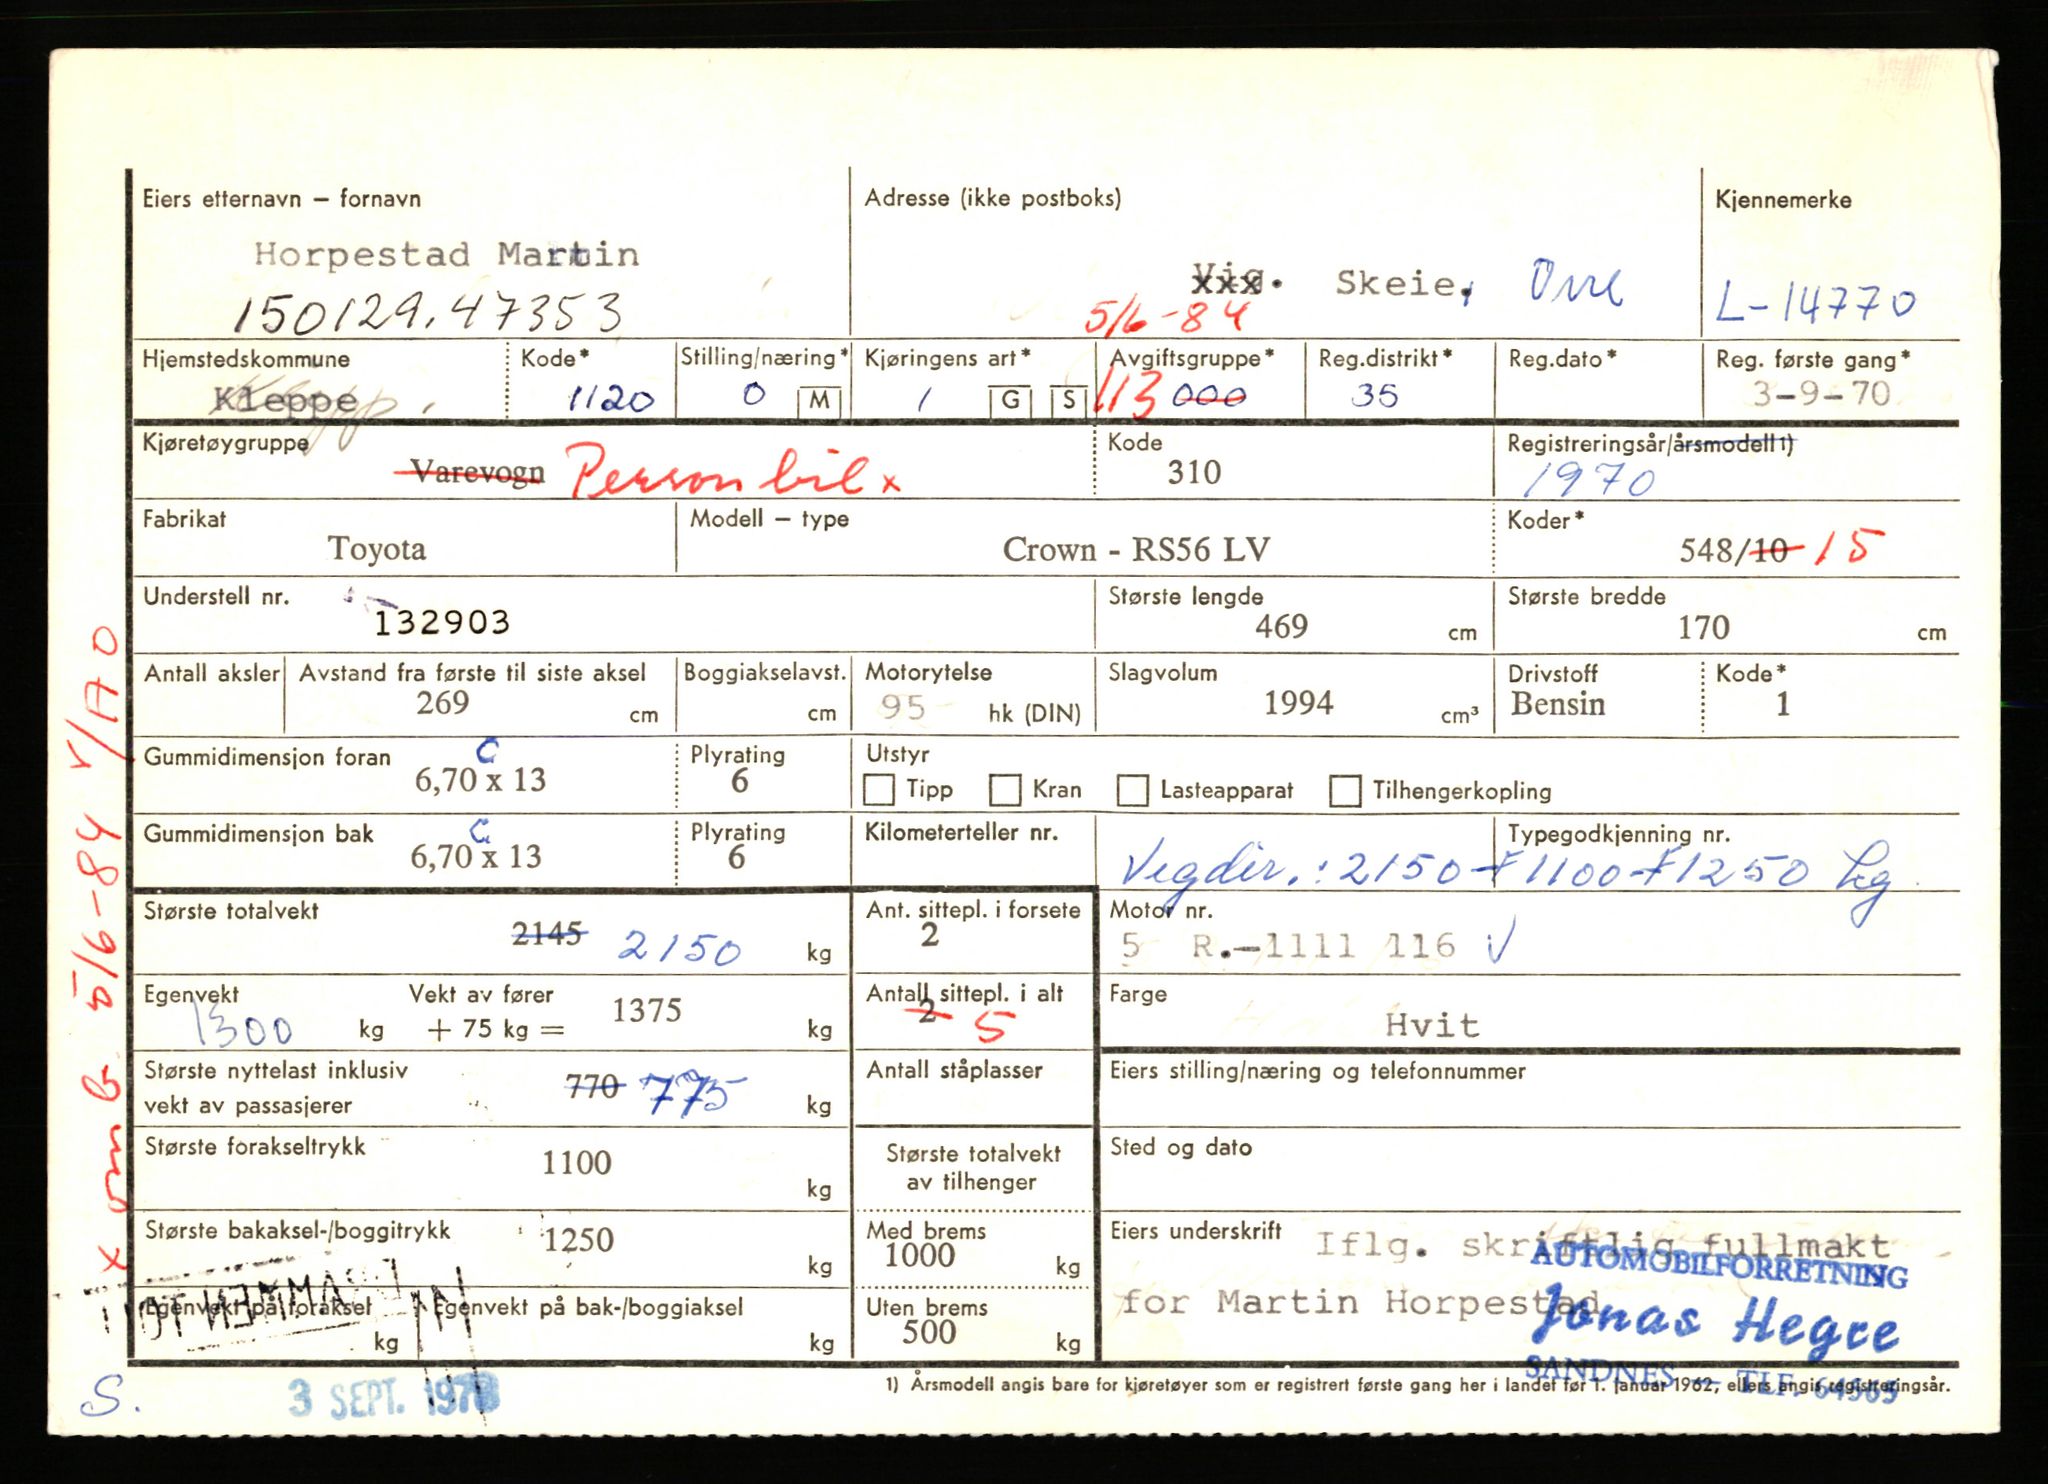 Eiers etternavn – fornavn
Adresse (ikke postboks)
Kjennemerke
Horpestad Martin
Skeie, Orre
150129.47353
5/6-84
L-14770
Hjemstedskommune
Kode*
Stilling/næring*
Kjøringens art*
Avgiftsgruppe*
Reg.distrikt*
Reg.dato*
Reg. første gang*
Kleppe
1120
0 M
1 G S
113 000
35
3-9-70
Kjøretøygruppe
Kode
Registreringsår/årsmodell 1)
Varevogn Personbil x
310
1970
Fabrikat
Modell – type
Koder*
Toyota
Crown - RS56 LV
548/10 15
Understell nr.
Største lengde
Største bredde
132903
469 cm
170 cm
Antall aksler
Avstand fra første til siste aksel
Boggiakselavst.
Motorytelse
Slagvolum
Drivstoff
Kode*
269 cm
cm
95 hk (DIN)
1994 cm³
Bensin
1
Gummidimensjon foran
Plyrating
Utstyr
C
6,70 x 13
6
Tipp
Kran
Lasteapparat
Tilhengerkopling
Gummidimensjon bak
Plyrating
Kilometerteller nr.
Typegodkjenning nr.
C
6,70 x 13
6
Vegdir.: 2150 + 1100 + 1250 kg
Største totalvekt
Ant. sittepl. i forsete
Motor nr.
2145 2150 kg
2
5 R.-1111 116
Egenvekt
Vekt av fører
Antall sittepl. i alt
Farge
1300 kg
+ 75 kg =
1375 kg
2 5
Hvit
Største nyttelast inklusiv
vekt av passasjerer
770 775 kg
Antall ståplasser
Eiers stilling/næring og telefonnummer
Største forakseltrykk
1100 kg
Største totalvekt
av tilhenger
Sted og dato
Største bakaksel-/boggitrykk
1250 kg
Med brems
1000 kg
Eiers underskrift
Iflg. skriftlig fullmakt
for Martin Horpestad
AUTOMOBILFORRETNING
Jonas Hegre
SANDNES – TLF. 64565
Egenvekt på foraksel
kg
Egenvekt på bak-/boggiaksel
kg
Uten brems
500 kg
S.
3 SEPT. 1970
1) Årsmodell angis bare for kjøretøyer som er registrert første gang her i landet før 1. januar 1962, ellers angis registreringsår.
x omb 5/6-84